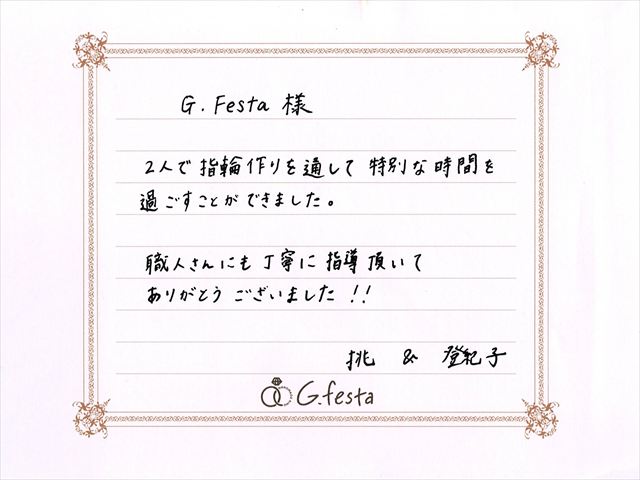 G. Festa 様
2人で指輪作りを通して 特別な時間を
過ごすことができました。
職人さんにも丁寧に指導頂いて
ありがとうございました!!
挑 & 登紀子
G.festa